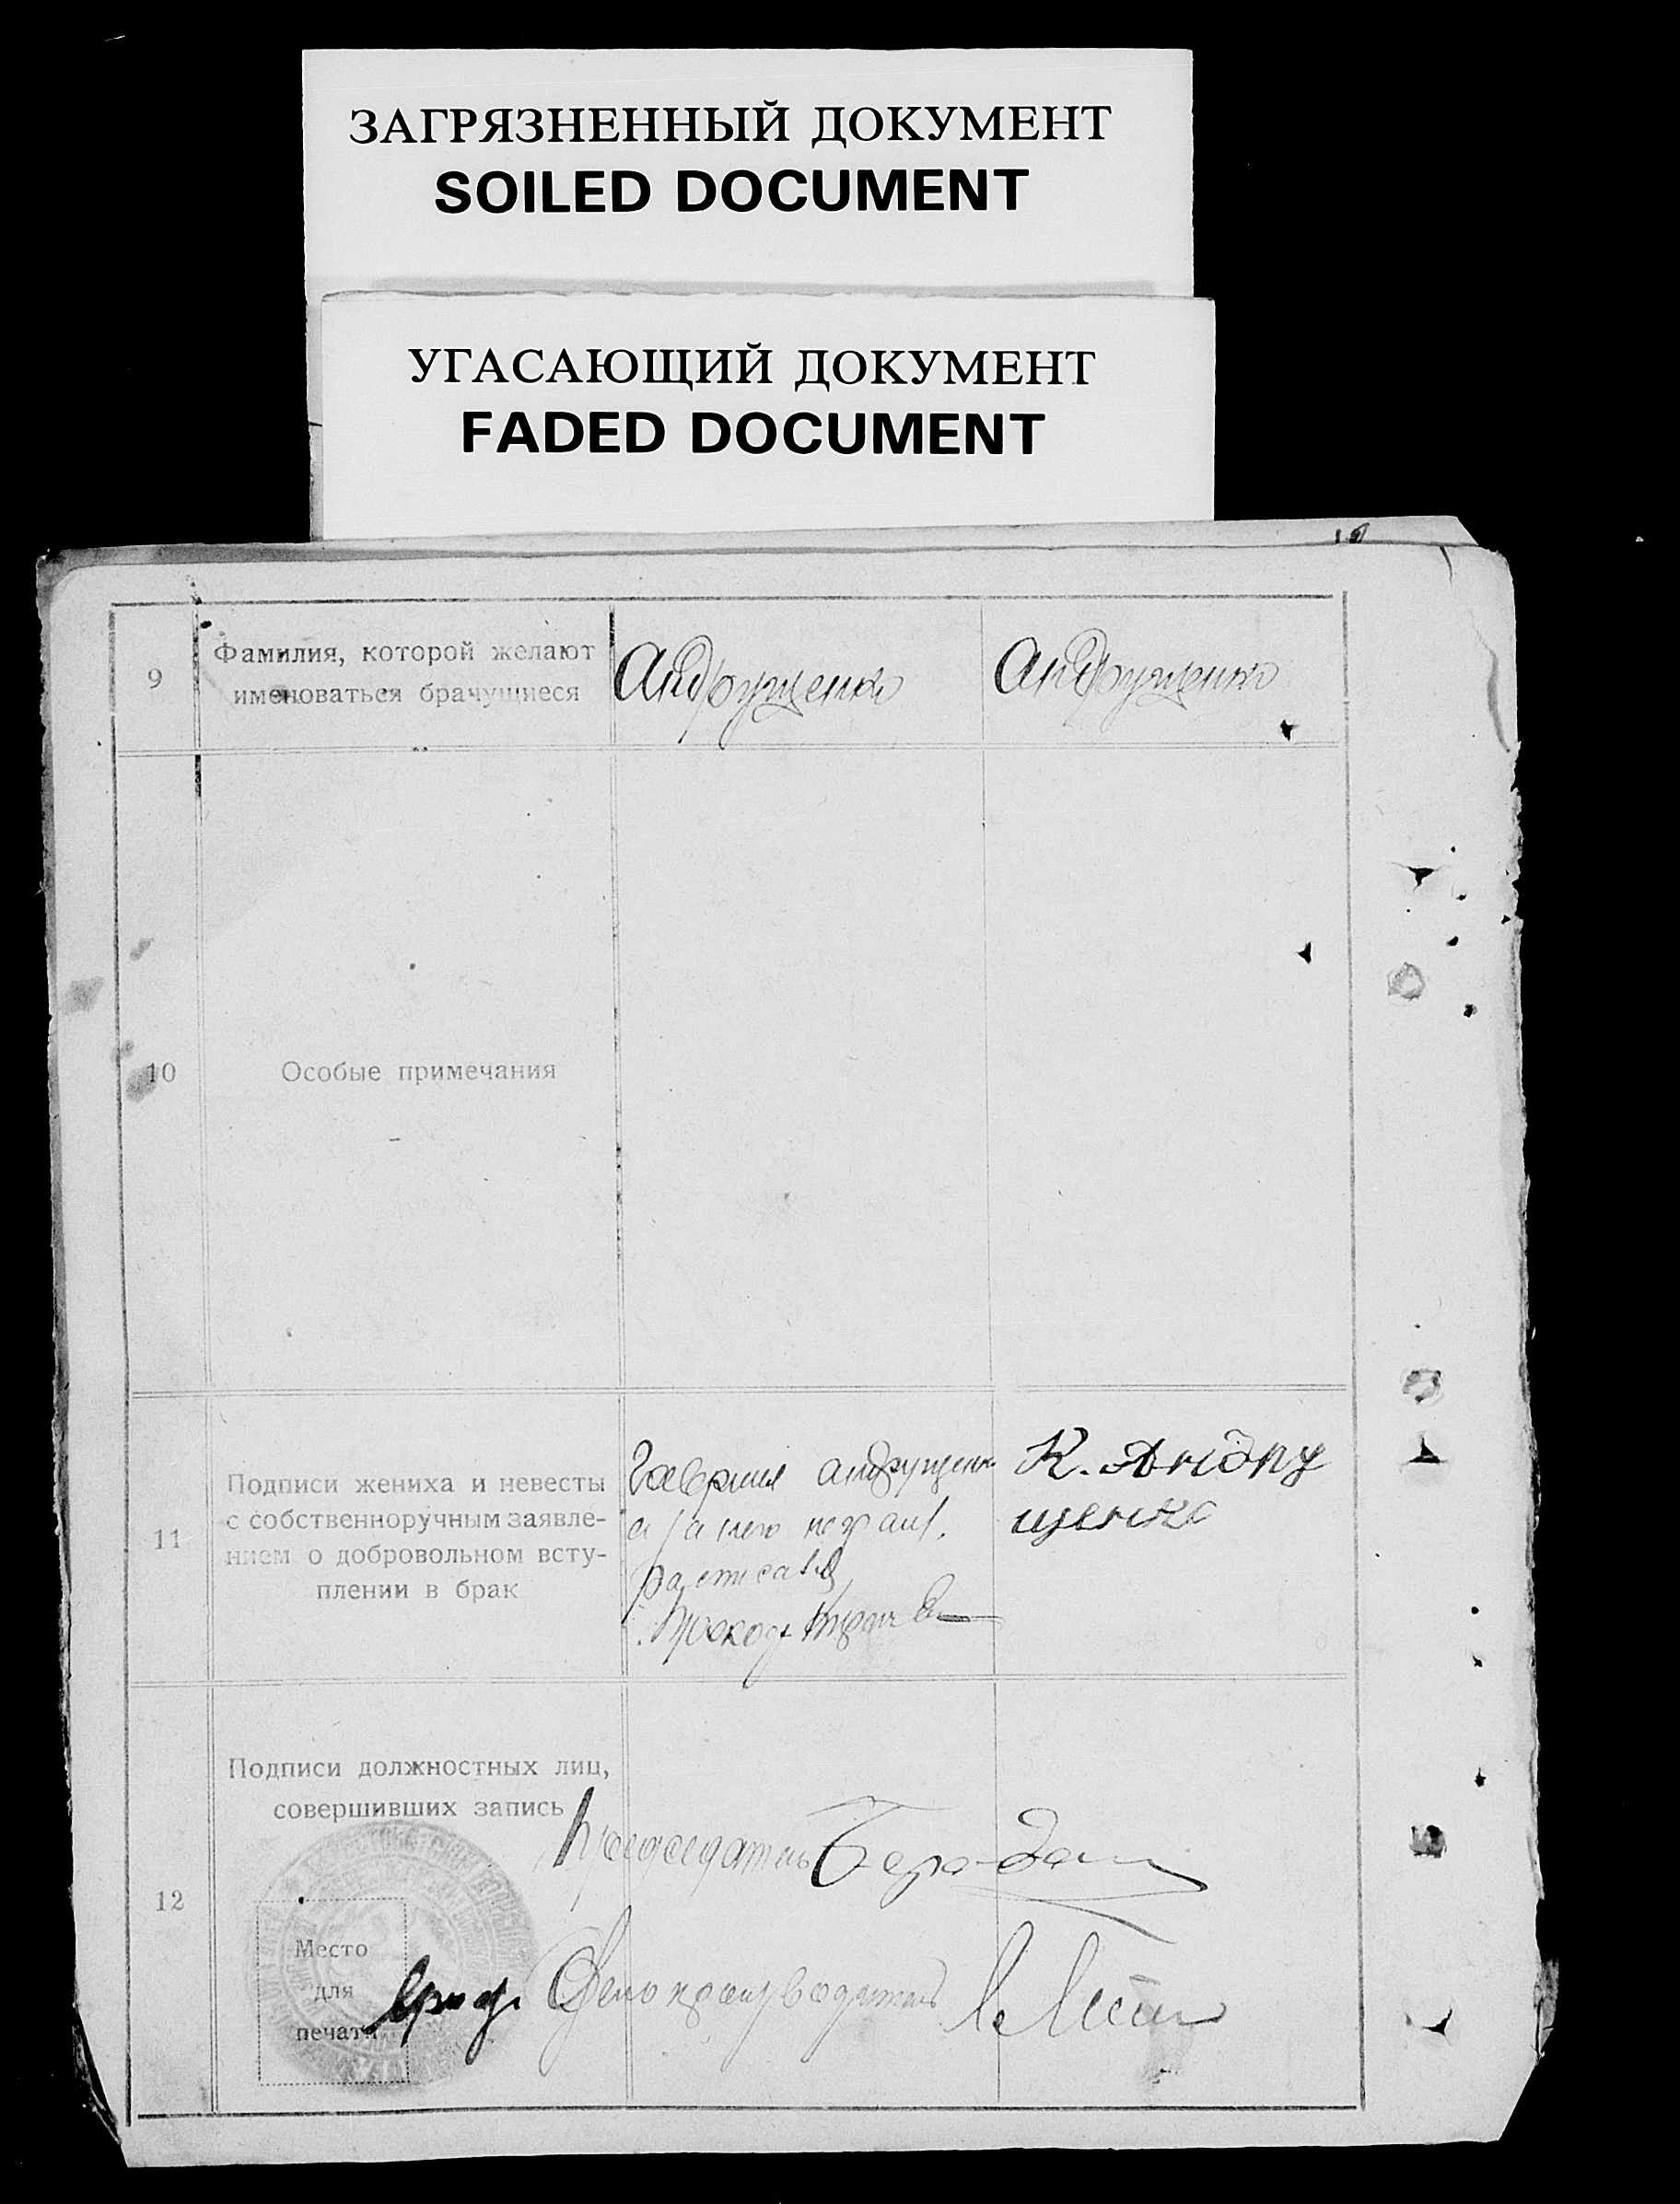 ЗАГРЯЗНЕННЫЙ ДОКУМЕНТ
SOILED DOCUMENT
УГАСАЮЩИЙ ДОКУМЕНТ
FADED DOCUMENT
9
Фамилия, которой желают
именоваться брачущиеся
Андрущенко
Андрущенко
10
Особые примечания
11
Подписи жениха и невесты
с собственноручным заявле-
нием о добровольном всту-
плении в брак
Гавриил Андрущенко
а за него неграм.
расписался
К. Андру
щенко
12
Подписи должностных лиц,
совершивших запись
Председатель
Место
для
печати
Делопроизводитель